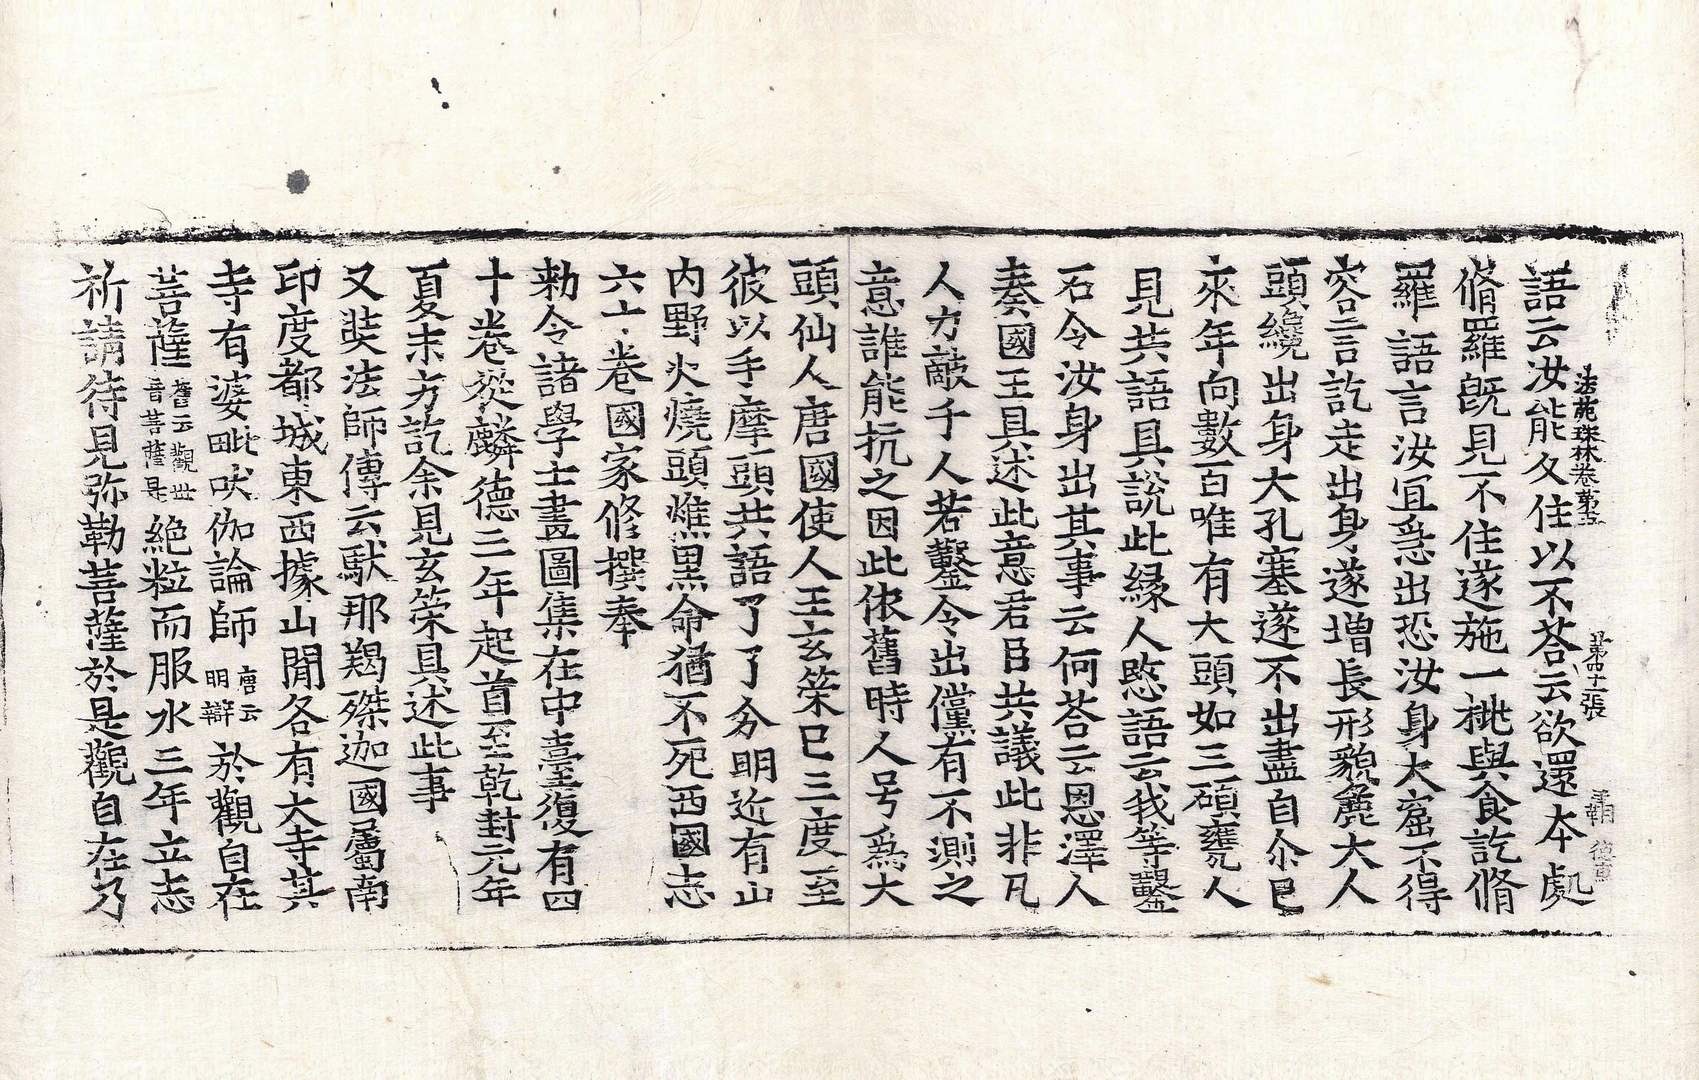 法苑珠林卷第五　第四十一張　覇
語云汝能久住以不荅云欲還本處
脩羅旣見不住遂施一桃與食訖脩
羅語言汝冝急出恐汝身大窟不得
容言訖走出身遂增長形貌麁大人
頭纔出身大孔塞遂不出盡自尒已
來年向數百唯有大頭如三碩甕人
見共語具說此緣人愍語云我等鑿
石令汝身出其事云何荅云恩澤人
奏國王具述此意君臣共議此非凡
人力敵千人若鑿令出儻有不測之
意誰能抗之因此依舊時人号爲大
頭仙人唐國使人王玄筞已三度至
彼以手摩頭共語了了分明近有山
内野火燒頭燋黒命猶不死西國志
六十卷國家修撰奉
勅令諸學士畫圖集在中臺復有四
十卷從麟德三年起首至乾封元年
夏末方訖余見玄筞具述此事
又奘法師傳云䭾那羯㩲迦國屬南
印度都城東西據山閒各有大寺其
寺有婆毗吠伽論師唐云明辯於觀自在
菩薩舊云觀世音菩薩是絕粒而服水三年立志
祈請待見弥勒菩薩於是觀自在乃